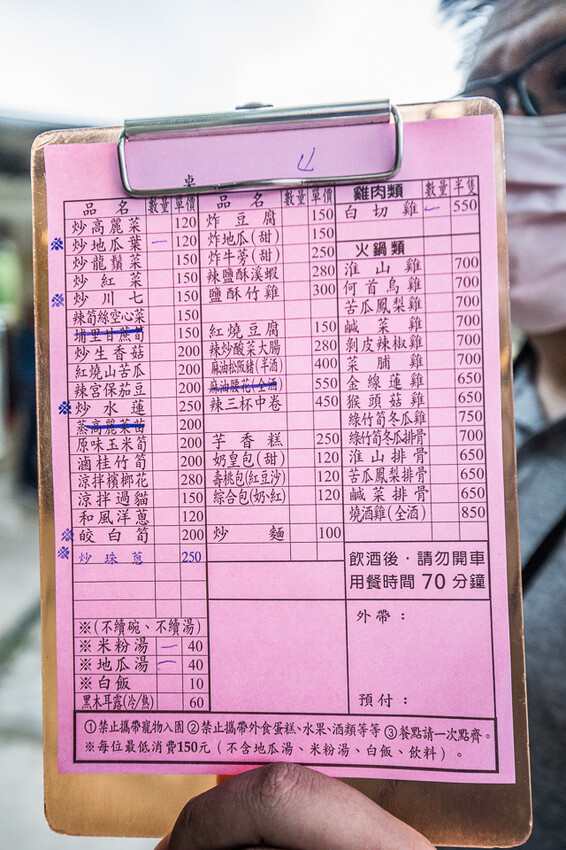 桌
品名 數量 單價
炒高麗菜 120
※ 炒地瓜葉 一 120
炒龍鬚菜 150
炒紅菜 150
※ 炒川七 150
辣筍絲空心菜 150
埔里甘蔗筍 150
炒生香菇 200
紅燒山苦瓜 200
辣宮保茄豆 200
※ 炒水蓮 250
蒸高麗菜苗 200
原味玉米筍 200
滷桂竹筍 200
涼拌檳榔花 280
涼拌過貓 150
和風洋蔥 120
※ 皎白筍 200
※ 炒珠蔥 250
※(不續碗、不續湯)
※米粉湯 一 40
※地瓜湯 一 40
※白飯 10
黑木耳露(冷/熱) 60
品名 數量 單價
炸豆腐 150
炸地瓜(甜) 150
炸牛蒡(甜) 250
辣鹽酥溪蝦 280
鹽酥竹雞 300
紅燒豆腐 150
辣炒酸菜大腸 280
麻油松阪豬(半酒) 400
麻油腰花(全酒) 550
辣三杯中卷 450
芋香糕 250
奶皇包(甜) 120
壽桃包(紅豆沙) 120
綜合包(奶、紅) 120
炒麵 100
雞肉類 數量 半隻
白切雞 一 550
火鍋類
淮山雞 700
何首烏雞 700
苦瓜鳳梨雞 700
鹹菜雞 700
剝皮辣椒雞 700
菜脯雞 700
金線蓮雞 650
猴頭菇雞 650
綠竹筍冬瓜雞 750
綠竹筍冬瓜排骨 700
淮山排骨 650
苦瓜鳳梨排骨 650
鹹菜排骨 650
燒酒雞(全酒) 850
飲酒後·請勿開車
用餐時間 70 分鐘
外帶：
預付：
①禁止攜帶寵物入園②禁止攜帶外食蛋糕、水果、酒類等等③餐點請一次點齊。
※每位最低消費150元(不含地瓜湯、米粉湯、白飯、飲料)。